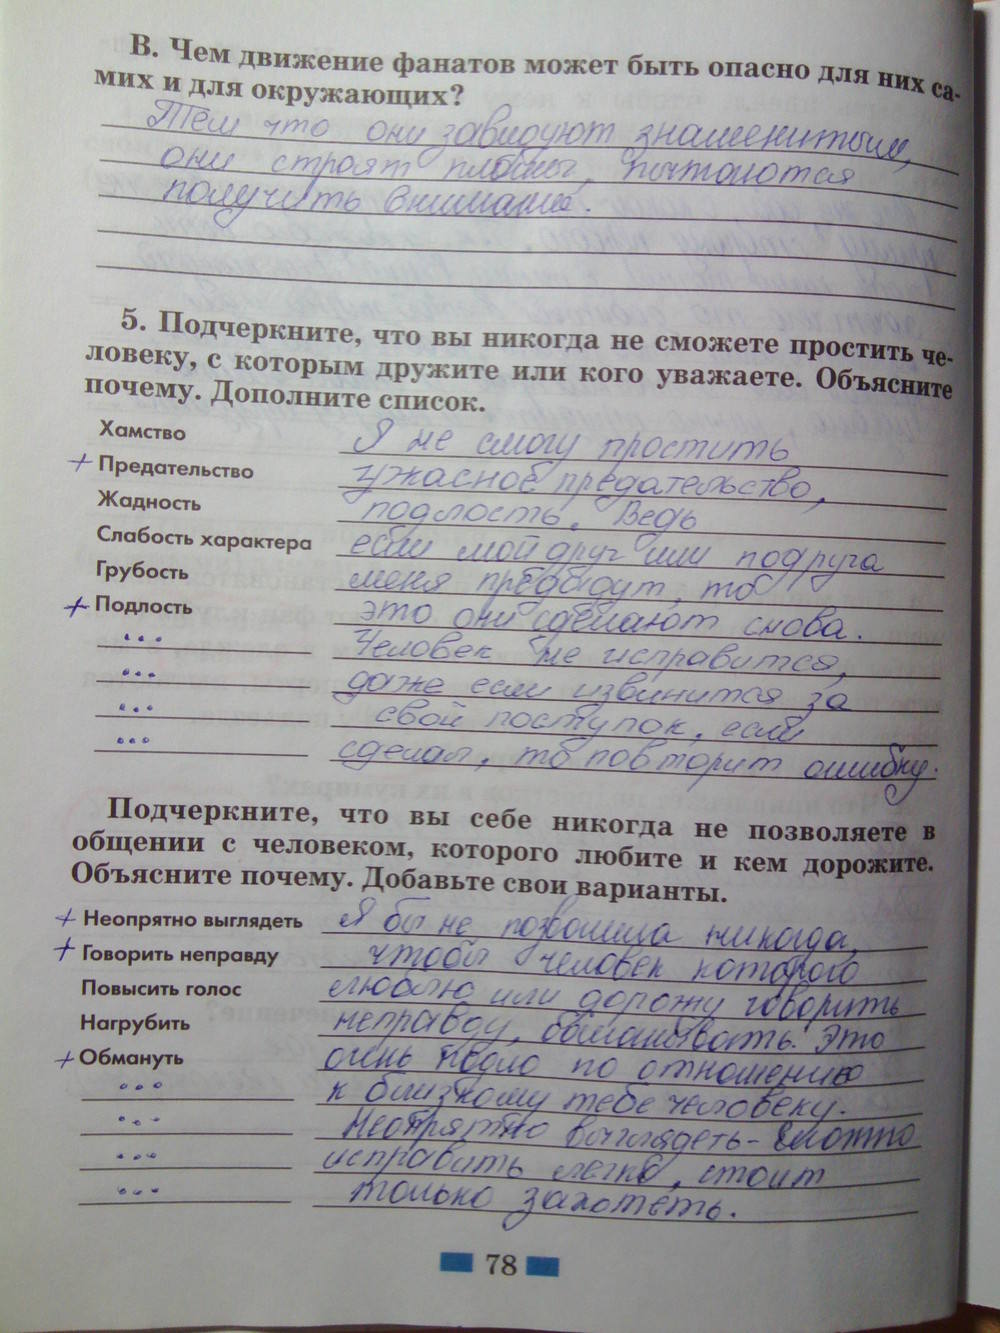 В. Чем движение фанатов может быть опасно для них са-
мих и для окружающих?
Тем что они завидуют знаменитым,
они строят планы, пытаются
получить внимание.
5. Подчеркните, что вы никогда не сможете простить че-
ловеку, с которым дружите или кого уважаете. Объясните
почему. Дополните список.
Хамство Я не смогу простить
+ Предательство ужасное предательство,
Жадность подлость. Ведь
Слабость характера если мой друг или подруга
Грубость меня предадут, то
+ Подлость это они сделают снова.
... Человек не исправится,
... даже если извинится за
... свой поступок, если
... сделал, то повторит ошибку.
Подчеркните, что вы себе никогда не позволяете в
общении с человеком, которого любите и кем дорожите.
Объясните почему. Добавьте свои варианты.
+ Неопрятно выглядеть Я бы не позволила никогда,
+ Говорить неправду чтобы человек которого
Повысить голос люблю или дорожу говорить
Нагрубить неправду, обманывать. Это
+ Обмануть очень подло по отношению
... к близкому тебе человеку.
... Неопрятно выглядеть - можно
... исправить легко, стоит
... только захотеть.
78